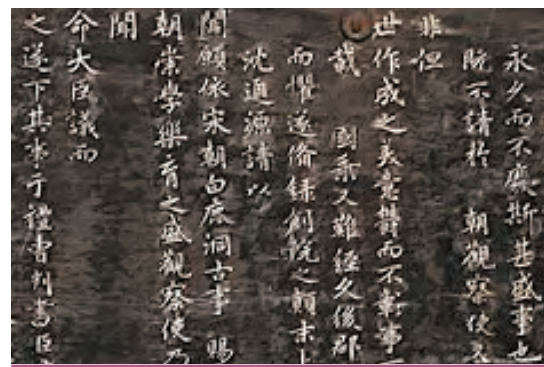 永久而不廢斯甚盛事也
既不請於 朝觀察使又
非但
世作成之美意贊而不彰事
哉 國乘又難經久後郡
而懼遂俻錄創院之顛末
沈通源請以
聞願依宋朝白鹿洞古事 賜
朝崇學樂育之盛觀察使乃
聞
命大臣議而
之遂下其事于禮曹判書臣